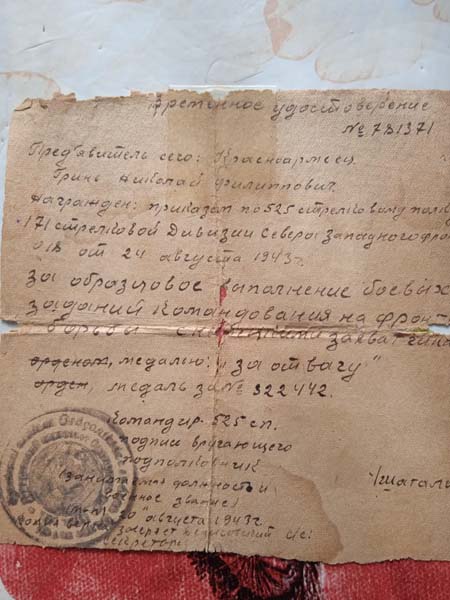 Временное удостоверение
№ 781371
Предъявитель сего: Красноармеец
Гринь Николай Филиппович
Награжден: приказом по 525 стрелковому полку
171 стрелковой Дивизии Северо Западного фро
от 24 августа 1943г.
за образцовое выполнение боевых
заданий Командования на фронт
борьбы с захватчика
орденом, медалью: "за отвагу"
орден, медаль за № 322442.
Командир 525 сп.
подпись вручающего
подполковник
(занимаемая должность и
военное звание)
"августа 1943г.